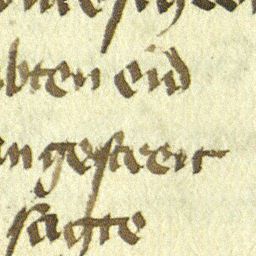 bten eid
en gestreit
sagte